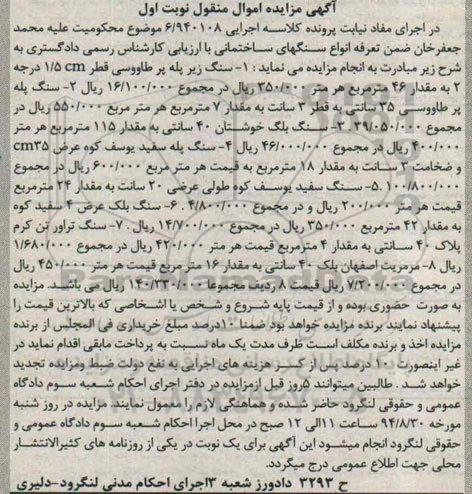 آگهی مزایده اموال منقول نوبت اول
در اجرای مفاد نیابت پرونده کلاسه اجرایی ۶/۹۴۰۱۰۸ موضوع محکومیت علیه محمد
جعفرخان ضمن تعرفه انواع سنگهای ساختمانی با ارزیابی کارشناس رسمی دادگستری به
شرح زیر مبادرت به انجام مزایده می نماید : ۱- سنگ زیر پله پر طاووسی قطر ۱/۵ cm درجه
۲ به مقدار ۴۶ مترمربع هر متر ۳۵۰/۰۰۰ ریال در مجموع ۱۶/۱۰۰/۰۰۰ ریال ۲- سنگ پله
پر طاووسی ۳۵ سانتی به قطر ۳ سانت به مقدار ۷ مترمربع هر متر مربع ۵۵۰/۰۰۰ ریال در
مجموع ۳۹/۰۵۰/۰۰۰ ۳- سنگ بلگ خوشتان ۴۰ سانتی به مقدار ۱۱۵ مترمربع هر متر
۴۰۰/۰۰۰ ریال در مجموع ۴۶/۰۰۰/۰۰۰ ریال ۴- سنگ پله سفید یوسف کوه عرض cm۳۵
و ضخامت ۳ سانت به مقدار ۱۸ مترمربع به قیمت هر متر مربع ۶۰۰/۰۰۰ ریال در مجموع
۱۰۰/۸۰۰/۰۰۰ .۵- سنگ سفید یوسف کوه طولی عرضی ۲۰ سانت به مقدار ۲۴ مترمربع
قیمت هر متر ۲۰۰/۰۰۰ ریال و در مجموع ۴/۸۰۰/۰۰۰ .۶- سنگ بلک عرض ۴ سفید کوه
به مقدار ۴۲ مترمربع ۳۵۰/۰۰۰ ریال در مجموع ۱۴/۷۰۰/۰۰۰ ریال .۷- سنگ تراور تن کرم
پلاک ۴۰ سانتی به مقدار ۴ مترمربع قیمت هر متر ۴۲۰/۰۰۰ ریال در مجموع ۱/۶۸۰/۰۰۰
ریال ۸- مرمریت اصفهان بلک ۴۰ سانتی به مقدار ۱۶ متر مربع قیمت هر متر ۴۵۰/۰۰۰ ریال
در مجموع ۷/۲۰۰/۰۰۰ ریال قیمت ۸ ردیف مجموعا ۱۴۰/۳۳۰/۰۰۰ ریال می باشد. مزایده
به صورت حضوری بوده و از قیمت پایه شروع و شخص یا اشخاصی که بالاترین قیمت را
پیشنهاد نمایند برنده مزایده خواهد بود ضمنا ۱۰درصد مبلغ خریداری فی المجلس از برنده
مزایده اخذ و برنده مکلف است ظرف مدت یک ماه نسبت به پرداخت مابقی اقدام نماید در
غیر اینصورت ۱۰ درصد پس از کسر هزینه های اجرایی به نفع دولت ضبط ومزایده تجدید
خواهد شد . طالبین میتوانند ۵روز قبل ازمزایده در دفتر اجرای احکام شعبه سوم دادگاه
عمومی و حقوقی لنگرود حاضر شده و هماهنگی لازم را معمول نمایند. مزایده در روز شنبه
مورخه ۹۴/۸/۳۰ ساعت ۱۱الی ۱۲ صبح در محل اجرا احکام شعبه سوم دادگاه عمومی و
حقوقی لنگرود انجام میشود این آگهی برای یک نوبت در یکی از روزنامه های کثیرالانتشار
محلی جهت اطلاع عمومی درج میگردد.
ح ۳۲۹۳ دادورز شعبه ۳اجرای احکام مدنی لنگرود-دلیری